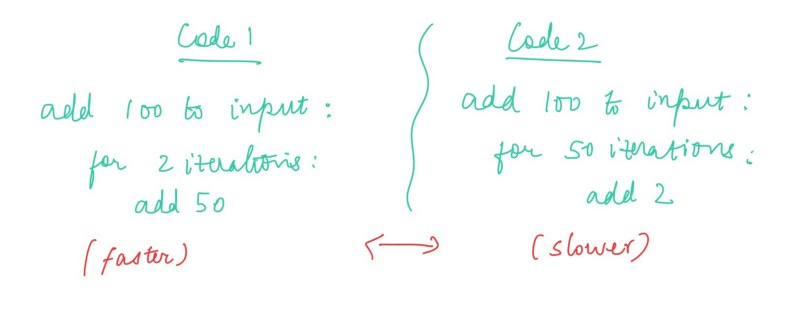 Code 1
add 100 to input :
for 2 iterations :
add 50
(faster)
Code 2
add 100 to input :
for 50 iterations :
add 2
(slower)